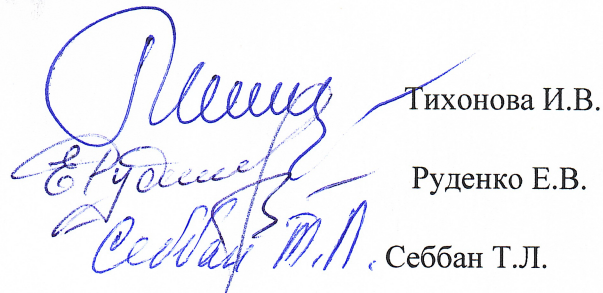 Тихонова И.В.
Руденко Е.В.
Себбан Т.Л. Себбан Т.Л.